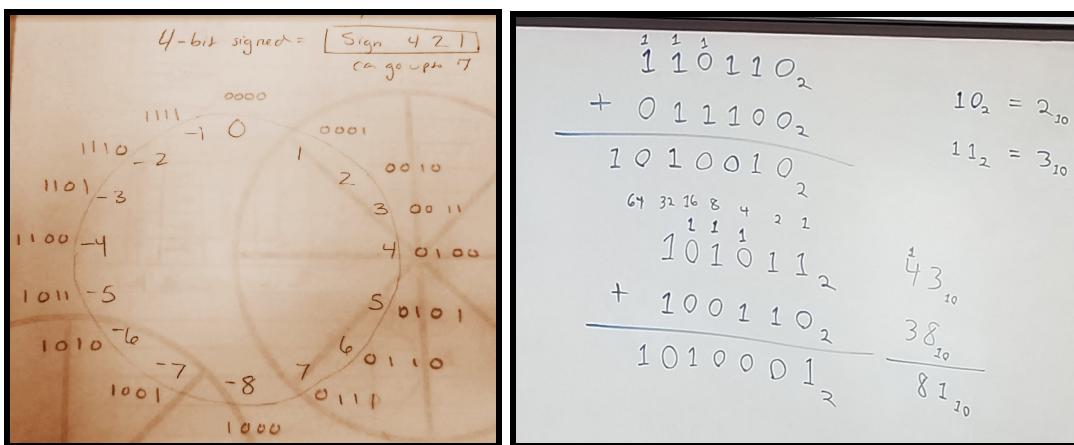 4-bit signed = Sign 4 2 1
can go upto 7
0000
1111 -1 0 0001
1110 -2 1 0010
1101 -3 2 0011
1100 -4 3 0100
1011 -5 4 0101
1010 -6 5 0110
1001 -7 6 0111
-8 7
1000
1 1 1
110110₂
+ 011100₂
1010010₂
10₂ = 2₁₀
11₂ = 3₁₀
64 32 16 8 4 2 1
1 1 1
101011₂
+ 100110₂
1010001₂
1
43₁₀
38₁₀
81₁₀